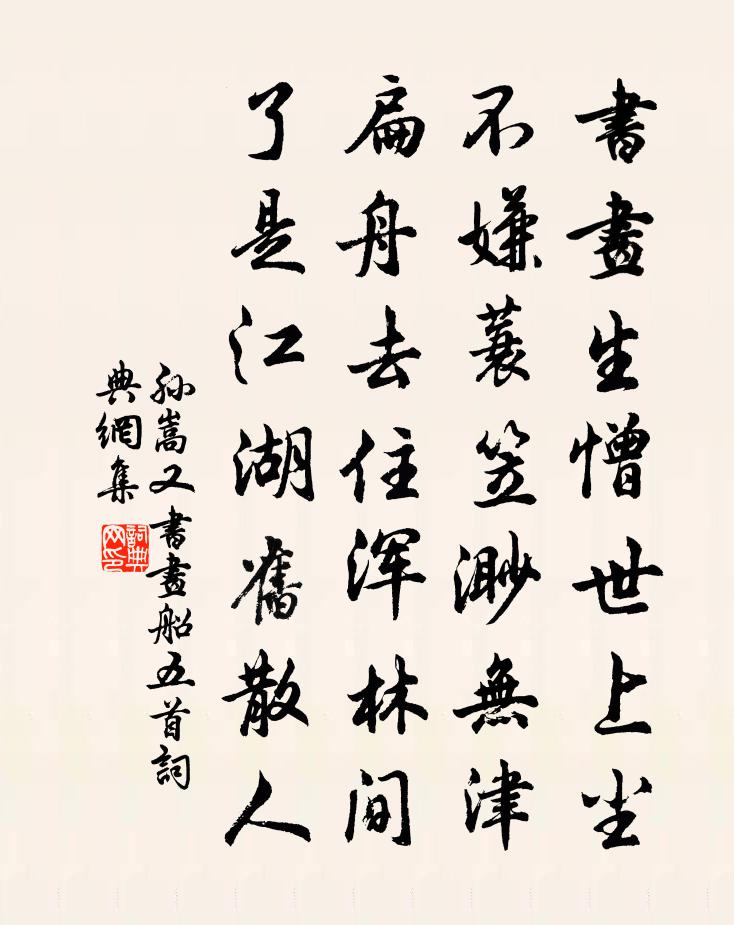 書畫生憎世上尘
不嫌蓑笠渺無津
扁舟去住浑林间
了是江湖舊散人
孙嵩又書畫船五首詞
典網集
詞典
网印